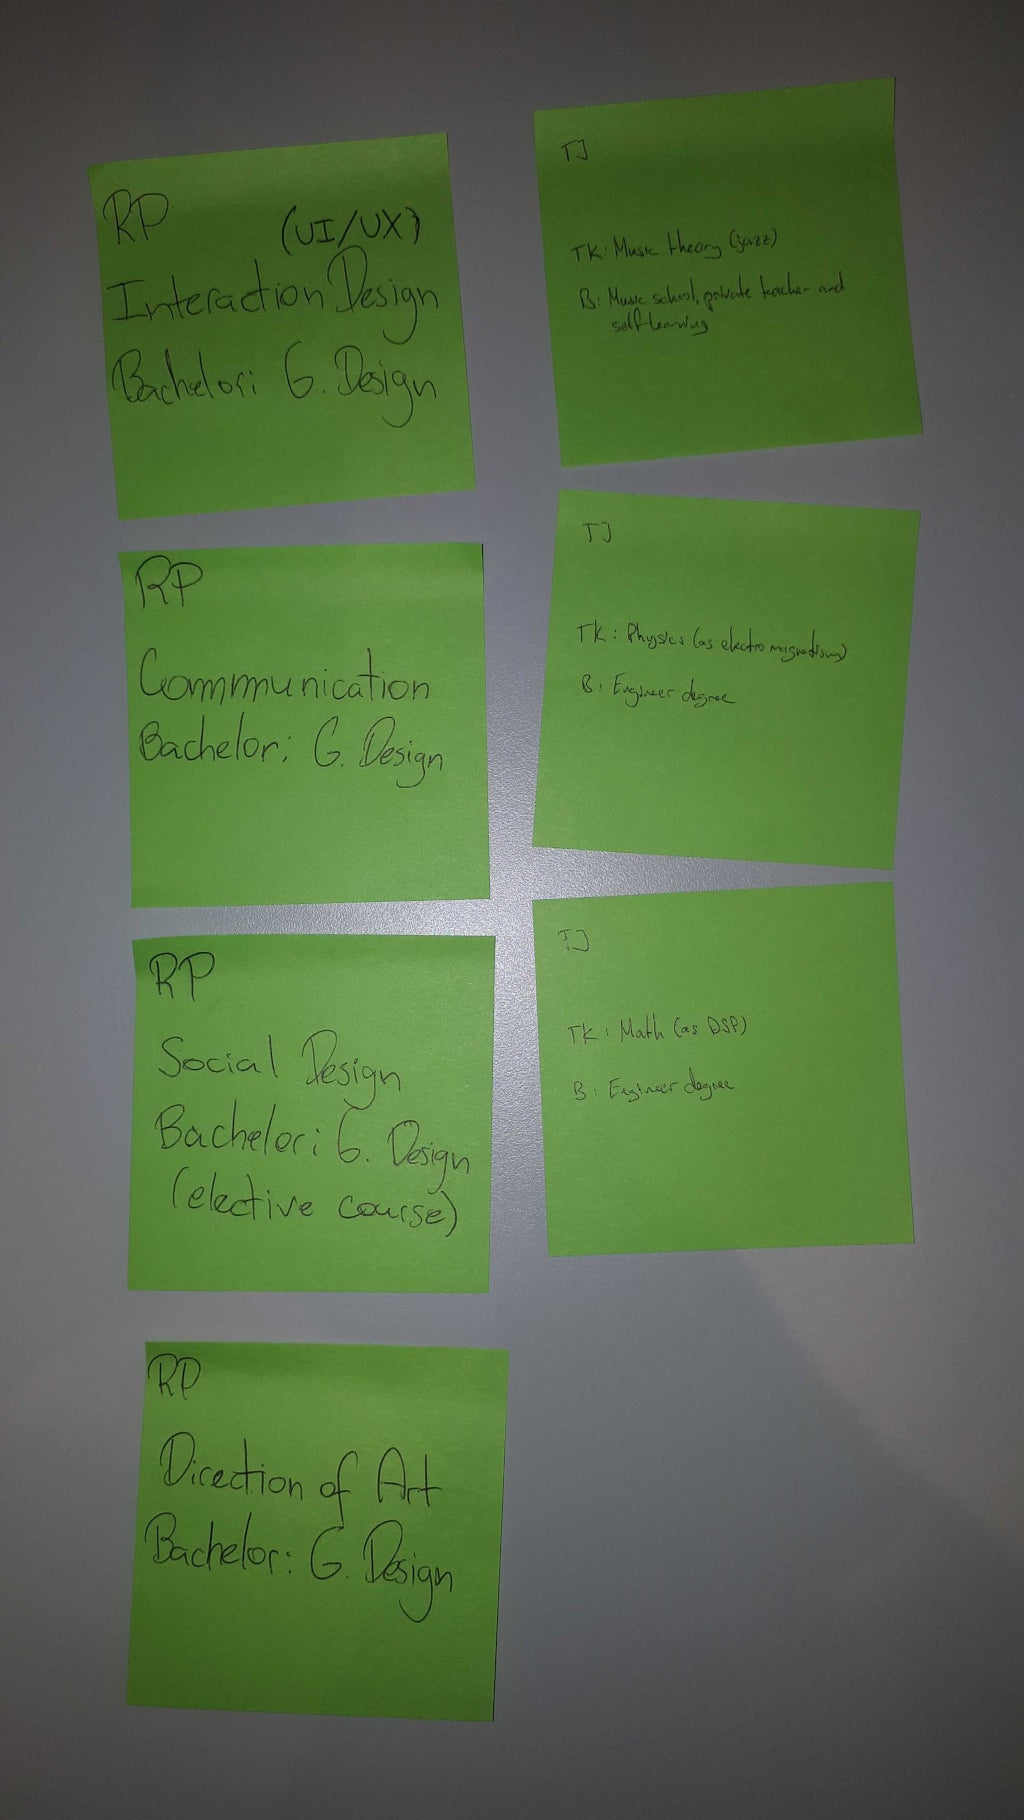 RP
(UI/UX)
Interaction Design
Bachelor: G. Design
RP
Commmunication
Bachelor: G. Design
RP
Social Design
Bachelor: G. Design
(elective course)
RP
Direction of Art
Bachelor: G. Design
TJ
TK: Music theory (jazz)
B: Music school, private teacher and
self learning
TJ
TK: Physics (as electro magnetism)
B: Engineer degree
TJ
TK: Math (as DSP)
B: Engineer degree